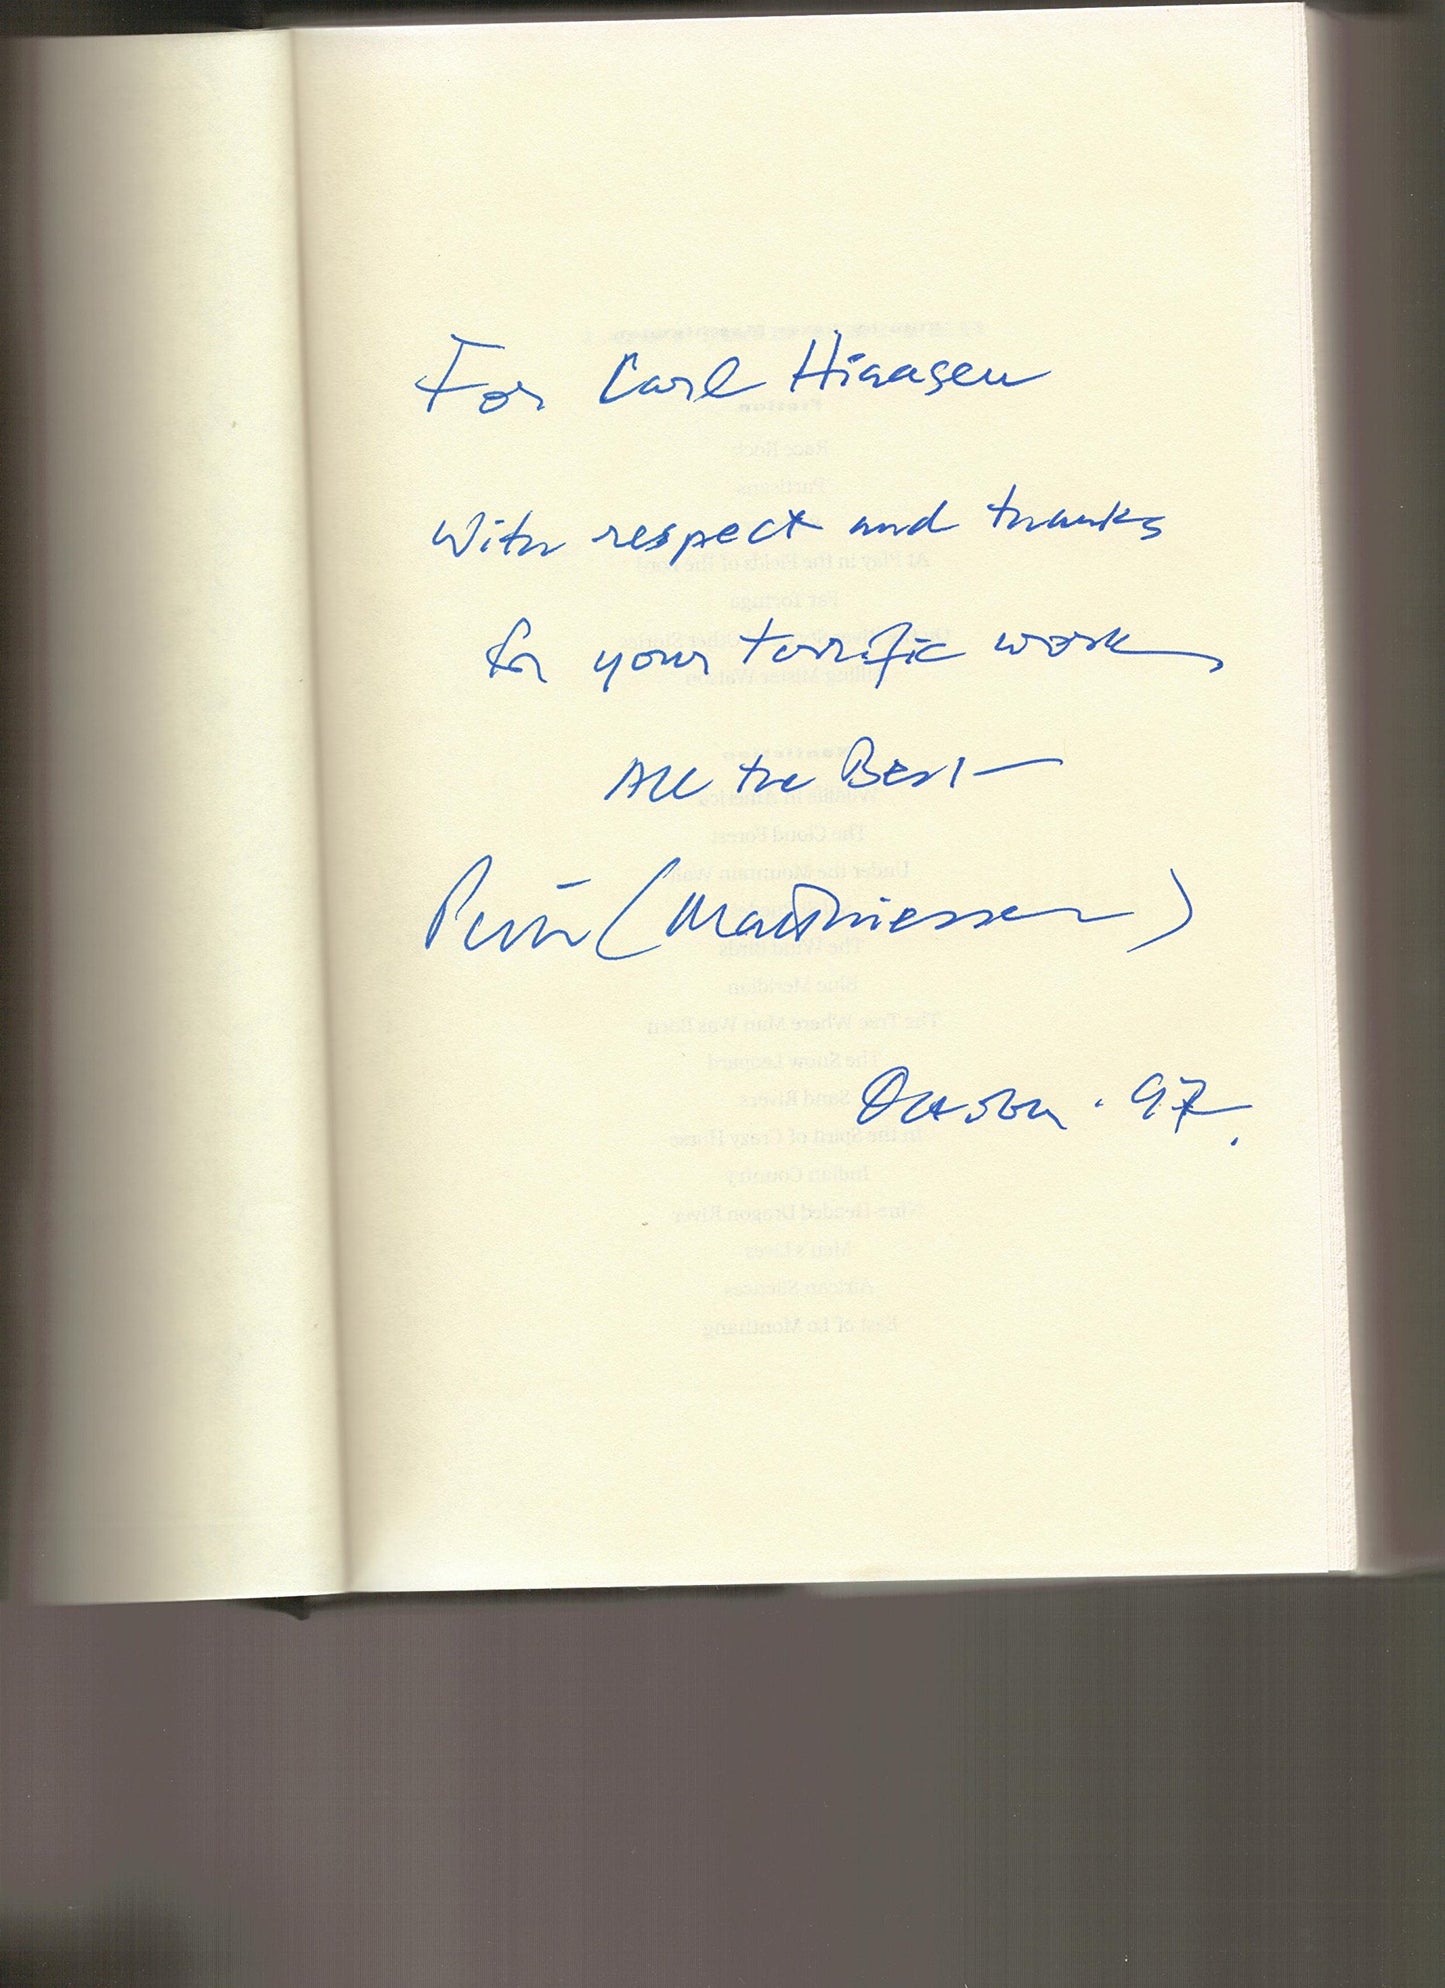 For Carl Hiaasen
With respect and thanks
for your terrific work
All the Best —
Peter (Matthiessen)
October · 97.
Fiction
Race Rock
Partisans
At Play in the Fields of the Lord
Far Tortuga
Killing Mister Watson
Nonfiction
Wildlife in America
The Cloud Forest
Under the Mountain Wall
The Wind Birds
Blue Meridian
The Tree Where Man Was Born
The Snow Leopard
Sand Rivers
In the Spirit of Crazy Horse
Indian Country
Nine-Headed Dragon River
Men's Lives
African Silences
East of Lo Monthang